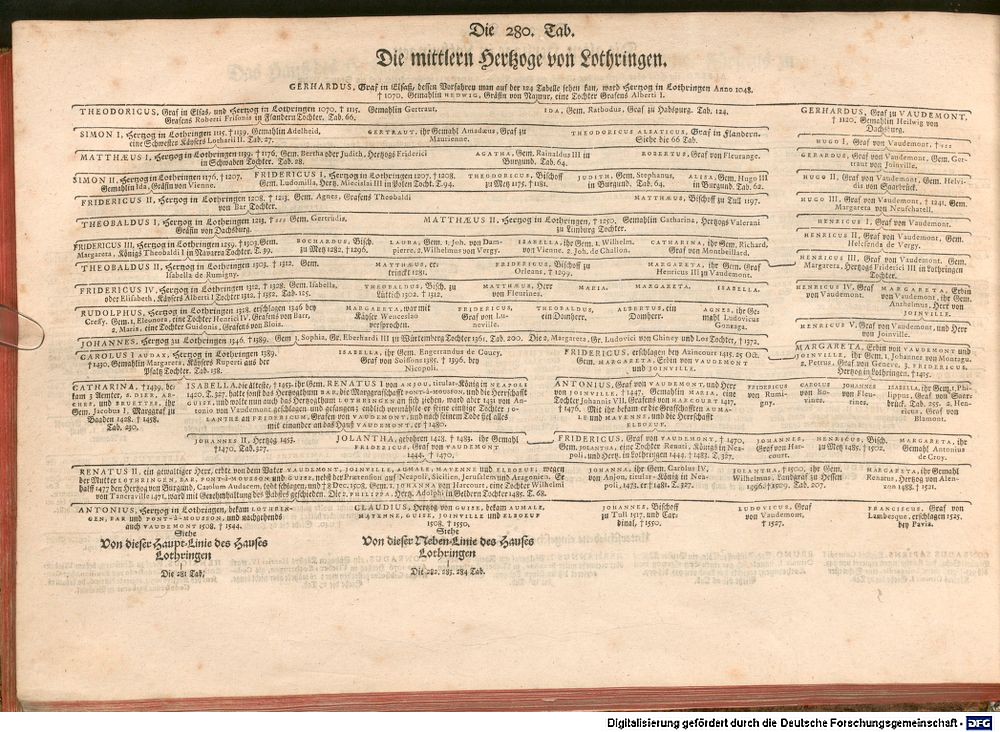 Die 280. Tab.
Die mittlern Hertzoge von Lothringen.
GERHARDUS, Graf in Elsaß, dessen Vorfahren man auf der 124 Tabelle sehen kan, ward Hertzog in Lothringen Anno 1048.
† 1070. Gemahlin HEDWIG, Gräfin von Namur, eine Tochter Grafens Alberti I.
THEODORICUS, Graf in Elsas, und Hertzog in Lothringen 1070, † 1115. Gemahlin Gertraut,
Grafens Roberti Frisonis in Flandern Tochter. Tab. 66.
IDA, Gem. Rathodus, Graf zu Habspurg. Tab. 124.
GERHARDUS, Graf zu VAUDEMONT,
† 1120. Gemahlin Heilwig von
Dachsburg.
SIMON I, Hertzog in Lothringen 1115. † 1139. Gemahlin Adelheid,
eine Schwester Käysers Lotharii II. Tab. 27.
GERTRAUT, ihr Gemahl Amadæus, Graf zu
Maurienne.
THEODORICUS ALSATICUS, Graf in Flandern.
Siehe die 66 Tab.
HUGO I, Graf von Vaudemont,
MATTHÆUS I, Hertzog in Lothringen 1139. † 1176. Gem. Bertha oder Judith, Hertzogs Friderici
in Schwaben Tochter. Tab. 28.
AGATHA, Gem. Rainaldus III in
Burgund. Tab. 64.
ROBERTUS, Graf von Fleurange.
GERARDUS, Graf von Vaudemont, Gem. Gertraut
von Joinville.
SIMON II, Hertzog in Lothringen 1176. † 1207.
Gemahlin Ida, Gräfin von Vienne.
FRIDERICUS I, Hertzog in Lothringen 1207, † 1208.
Gem. Ludomilla, Hertz. Miecislai III in Polen Tocht. T. 94.
THEODORICUS, Bischoff
zu Metz 1175. † 1181.
JUDITH, Gem. Stephanus,
in Burgund. Tab. 64.
ALISA, Gem. Hugo III
in Burgund. Tab. 62.
HUGO II, Graf von Vaudemont, Gem. Helvidis
von Saarbrück.
FRIDERICUS II, Hertzog in Lothringen 1208. † 1213. Gem. Agnes, Grafens Theobaldi
von Bar Tochter.
MATTHÆUS, Bischoff zu Tull 1197.
HUGO III, Graf von Vaudemont, † 1242. Gem.
Margareta von Neufchatell.
THEOBALDUS I, Hertzog in Lothringen 1213. Gem. Gertrudis,
Gräfin von Dachsburg.
MATTHÆUS II, Hertzog in Lothringen, † 1250. Gemahlin Catharina, Hertzogs Valerani
zu Limburg Tochter.
HENRICUS I, Graf von Vaudemont.
FRIDERICUS III, Hertzog in Lothringen 1259. † 1303. Gem.
Margareta, Königs Theobaldi I in Navarra Tochter. T. 59.
BOCHARDUS, Bisch.
zu Metz 1282. † 1296.
LAURA, Gem. 1. Joh. von Dampierre.
2. Wilhelmus von Vergy.
ISABELLA, ihr Gem. 1. Wilhelm.
von Vienne. 2. Joh. de Challon.
CATHARINA, ihr Gem. Richard,
Graf von Montbeillard.
HENRICUS II, Graf von Vaudemont, Gem.
Helisenda de Vergy.
THEOBALDUS II, Hertzog in Lothringen 1303. † 1312. Gem.
Isabella de Rumigny.
MATTHÆUS, ertrinckt
1281.
FRIDERICUS, Bischoff zu
Orleans, † 1299.
MARGARETA, ihr Gem. Graf
Henricus III zu Vaudemont.
HENRICUS III, Graf von Vaudemont, Gem.
Margareta, Hertzogs Friderici III in Lothringen
Tochter.
FRIDERICUS IV, Hertzog in Lothringen 1312, † 1328. Gem. Isabella,
oder Elisabeth, Käysers Alberti I Tochter 1312, † 1352. Tab. 125.
THEOBALDUS, Bisch. zu
Lüttich 1302. † 1312.
MATTHÆUS, Herr
von Fleurines.
MARIA. MARGARETA. ISABELLA.
HENRICUS IV, Graf
von Vaudemont.
MARGARETA, Erbin
von Vaudemont, ihr Gem.
Anshelmus, Herr von
JOINVILLE.
RUDOLPHUS, Hertzog in Lothringen 1328. erschlagen 1346 bey
Cressy. Gem. 1. Eleonora, eine Tochter Henrici IV, Grafens von Barr,
2. Maria, eine Tochter Guidonis, Grafens von Blois.
MARGARETA, war mit
Käyser Wenceslao
versprochen.
FRIDERICUS,
Graf von Luneville.
THEOBALDUS,
ein Domherr.
ALBERTUS, ein
Domherr.
AGNES, ihr Gemahl
Ludovicus
Gonzaga.
HENRICUS V, Graf von Vaudemont, und Herr
von Joinville.
JOHANNES, Hertzog zu Lothringen 1346. † 1389. Gem. 1. Sophia, Gr. Eberhardi III zu Würtemberg Tochter 1361. Tab. 200. Die 2. Margareta, Gr. Ludovici von Chiney und Los Tochter, † 1372.
MARGARETA, Erbin von VAUDEMONT und
JOINVILLE, ihr Gem. 1. Johannes von Montagu.
2. Petrus, Graf von Geneve. 3. FRIDERICUS,
Hertzog in Lothringen, † 1415.
CAROLUS I AUDAX, Hertzog in Lothringen 1389.
† 1430. Gemahlin Margareta, Käysers Ruperti aus der
Pfaltz Tochter. Tab. 138.
ISABELLA, ihr Gem. Engerrandus de Coucy,
Graf von Soissons 1386. † 1396. bey
Nicopoli.
FRIDERICUS, erschlagen bey Azincourt 1415. 25 Oct.
Gem. MARGARETA, Erbin von VAUDEMONT
und JOINVILLE.
CATHARINA, † 1439, bekam
3 Aemter,
ihr
Gem. Jacobus I, Marggraf zu
Baaden 1428. † 1458.
Tab. 230.
ISABELLA, die älteste, † 1453. ihr Gem. RENATUS I von ANJOU, titular-König in NEAPOLI
1420. T. 327. hatte sonst das Hertzogthum BAR, die Marggrafschafft PONT-à-MOUSSON, und die Herrschafft
GUISE, und wolte nun auch das Hertzogthum LOTHRINGEN an sich ziehen, ward aber 1431 von Antonio
von Vaudemont geschlagen und gefangen; endlich vermählte er seine eintzige Tochter JOLANTHE
an FRIDERICUM, Grafen von VAUDEMONT, und nach seinem Tode fiel alles
mit einander an das Hauß VAUDEMONT, er † 1480.
ANTONIUS, Graf von VAUDEMONT, und Herr
von JOINVILLE, † 1447. Gemahlin MARIA, eine
Tochter Johannis VII, Grafens von HARCOURT 1417,
† 1476. Mit ihr bekam er die Grafschafften AUMALE
und MAYENNE, und die Herrschafft
ELBOEUF.
FRIDERICUS
von Rumigny.
CAROLUS
von Bovines.
JOHANNES
von Fleurines.
ISABELLA, ihr Gem. 1. Philippus,
Graf von Saarbrück.
Tab. 255. 2. Henricus,
Graf von
Blamont.
JOHANNES II, Hertzog 1453.
† 1470. Tab. 327.
JOLANTHA, gebohren 1428. † 1483. ihr Gemahl
FRIDERICUS, Graf von VAUDEMONT
1444. † 1470,
FRIDERICUS, Graf von VAUDEMONT, † 1470,
Gem. JOLANTHA, Tochter Renati, Königs in Neapoli,
und Hertz. in Lothringen 1444. † 1483. T. 327.
JOHANNES,
Graf von Harcourt.
HENRICUS, Bisch.
zu Metz 1485. † 1502.
MARGARETA, ihr
Gemahl Antonius
de Croy.
RENATUS II, ein gewaltiger Herr, erbte von dem Vater VAUDEMONT, JOINVILLE, AUMALE, MAYENNE und ELBOEUF; wegen
der Mutter LOTHRINGEN, BAR, PONT-à-MOUSSON und GUISE, nebst der Prætension auf Neapoli, Sicilien, Jerusalem und Aragonien. Er
halff 1477 den Hertzog von Burgund, Carolum Audacem, todt schlagen, und † 8 Dec. 1508. Gem. 1. JOHANNA von Harcourt, eine Tochter Wilhelmi
von Tancerville 1471, ward mit Genehmhaltung des Pabstes geschieden. Die 2. PHILIPPA, Hertz. Adolphi in Geldern Tochter 1485. T. 68.
JOHANNA, ihr Gem. Carolus IV,
von Anjou, titular-König in Neapoli,
1473. er † 1481. T. 327.
JOLANTHA, † 1500, ihr Gem.
Wilhelmus, Landgraf zu Hessen
† 1509. Tab. 207.
MARGARETA, ihr Gemahl
Renatus, Hertzog von Alenzon
1488. † 1521.
ANTONIUS, Hertzog in Lothringen, bekam LOTHRINGEN,
BAR und PONT-à-MOUSSON, und nachgehends
auch VAUDEMONT 1508. † 1544.
Siehe
Von dieser Haupt-Linie des Hauses
Lothringen
Die 281 Tab.
CLAUDIUS, Hertzog von GUISE, bekam AUMALE,
MAYENNE, GUISE, JOINVILLE und ELBOEUF
1508. † 1550,
Siehe
Von dieser Neben-Linie des Hauses
Lothringen
Die 282. 283. 284 Tab.
JOHANNES, Bischoff
zu Tull 1517, und Cardinal,
† 1550.
LUDOVICUS, Graf
von Vaudemont,
† 1527.
FRANCISCUS, Graf von
Lambesque, erschlagen 1525.
bey Pavia.
Digitalisierung gefördert durch die Deutsche Forschungsgemeinschaft - DFG